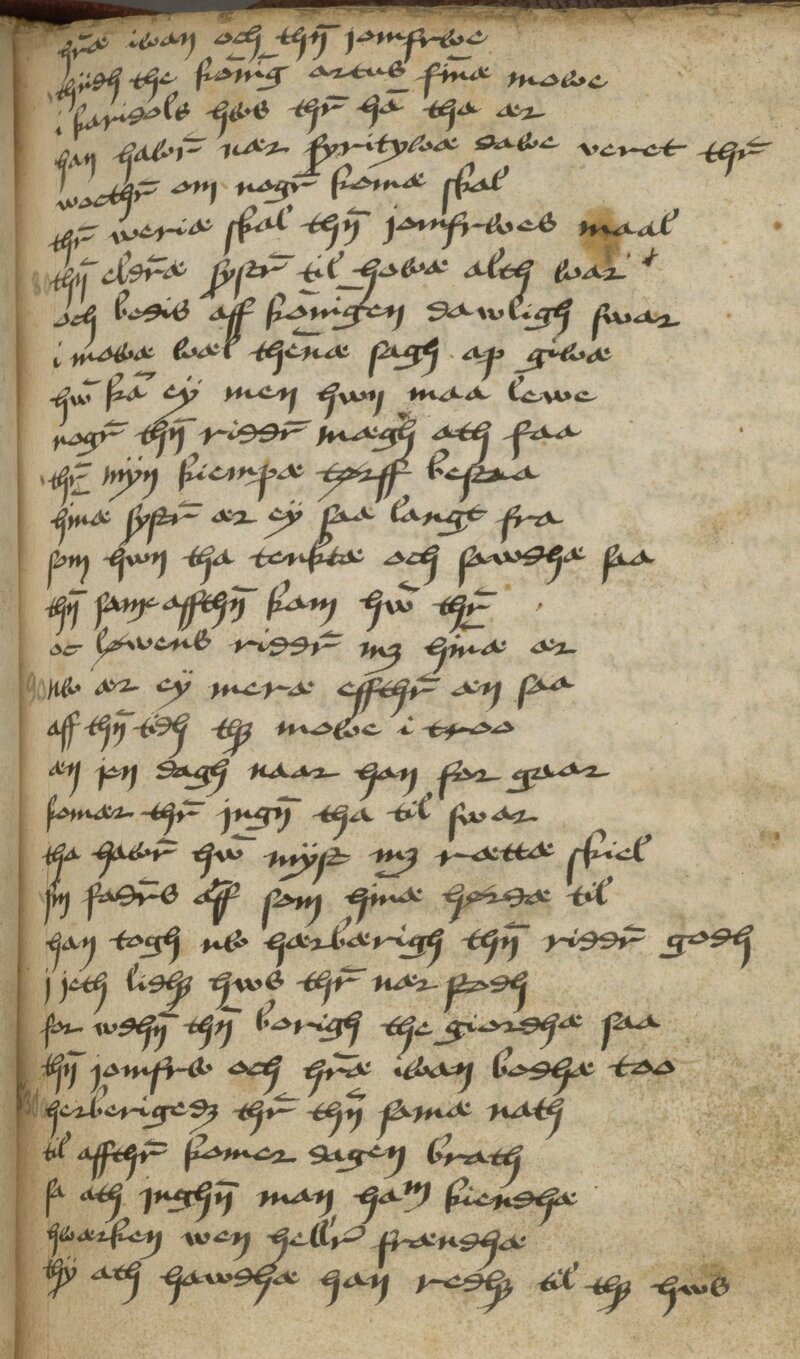 hr̄æ iwan och thn̄ jomfrwe
thiidh the kōnīg artus fīnæ mowe
i karidols hws thr̄ hā tha ær
han hawr̄ nær fyritywæ dawe veret thr̄
woethr̄ om nogr̄ komæ skal
thr̄ weriæ skal thn̄ jomfrwes maal
thn̄ eldr̄æ systr̄ til howæ alth war
och bedis aff kōnīgen dawligh swar
i mowæ wæl thēnæ sagh ap giwæ
hw̄ kā ey men hwn maa lewe
nogr̄ thn̄ riddr̄ mægh ath faa
thr̄ mÿn kiempæ tørff bestaa
hīnæ systr̄ ær eÿ saa langt fra
som hwn tha tenktæ och sawdhæ saa
thn̄ same affthn̄ kam hw̄ thr̄
oc løwens riddr̄ mꝫ hīnæ ær
nw ær eÿ meræ effthr̄ æn saa
aff thn̄ tidh thꝫ mowe i troo
æn jen dagh naar han for gaar
komær thr̄ jngn̄ tha til swar
tha hawr̄ hw̄ mÿst mꝫ rættæ skiel
sin fadr̄s aff som hīnæ hørdæ til
han togh nw hærbærigh thn̄ riddr̄ godh
j jeth lidhꝫ hws thr̄ nær stodh
for wdhn̄ thn̄ borigh the giordhæ saa
thn̄ jomfrw och hr̄æ iwan bodhæ too
herberigedꝫ thr̄ thn̄ samæ nath
til affthr̄ komer dagen brath
sa ath jnghn̄ man ham kiendhæ
hwærken wen hellr̄ frændhæ
thÿ ath hawdhæ han redhꝫ til thꝫ hws